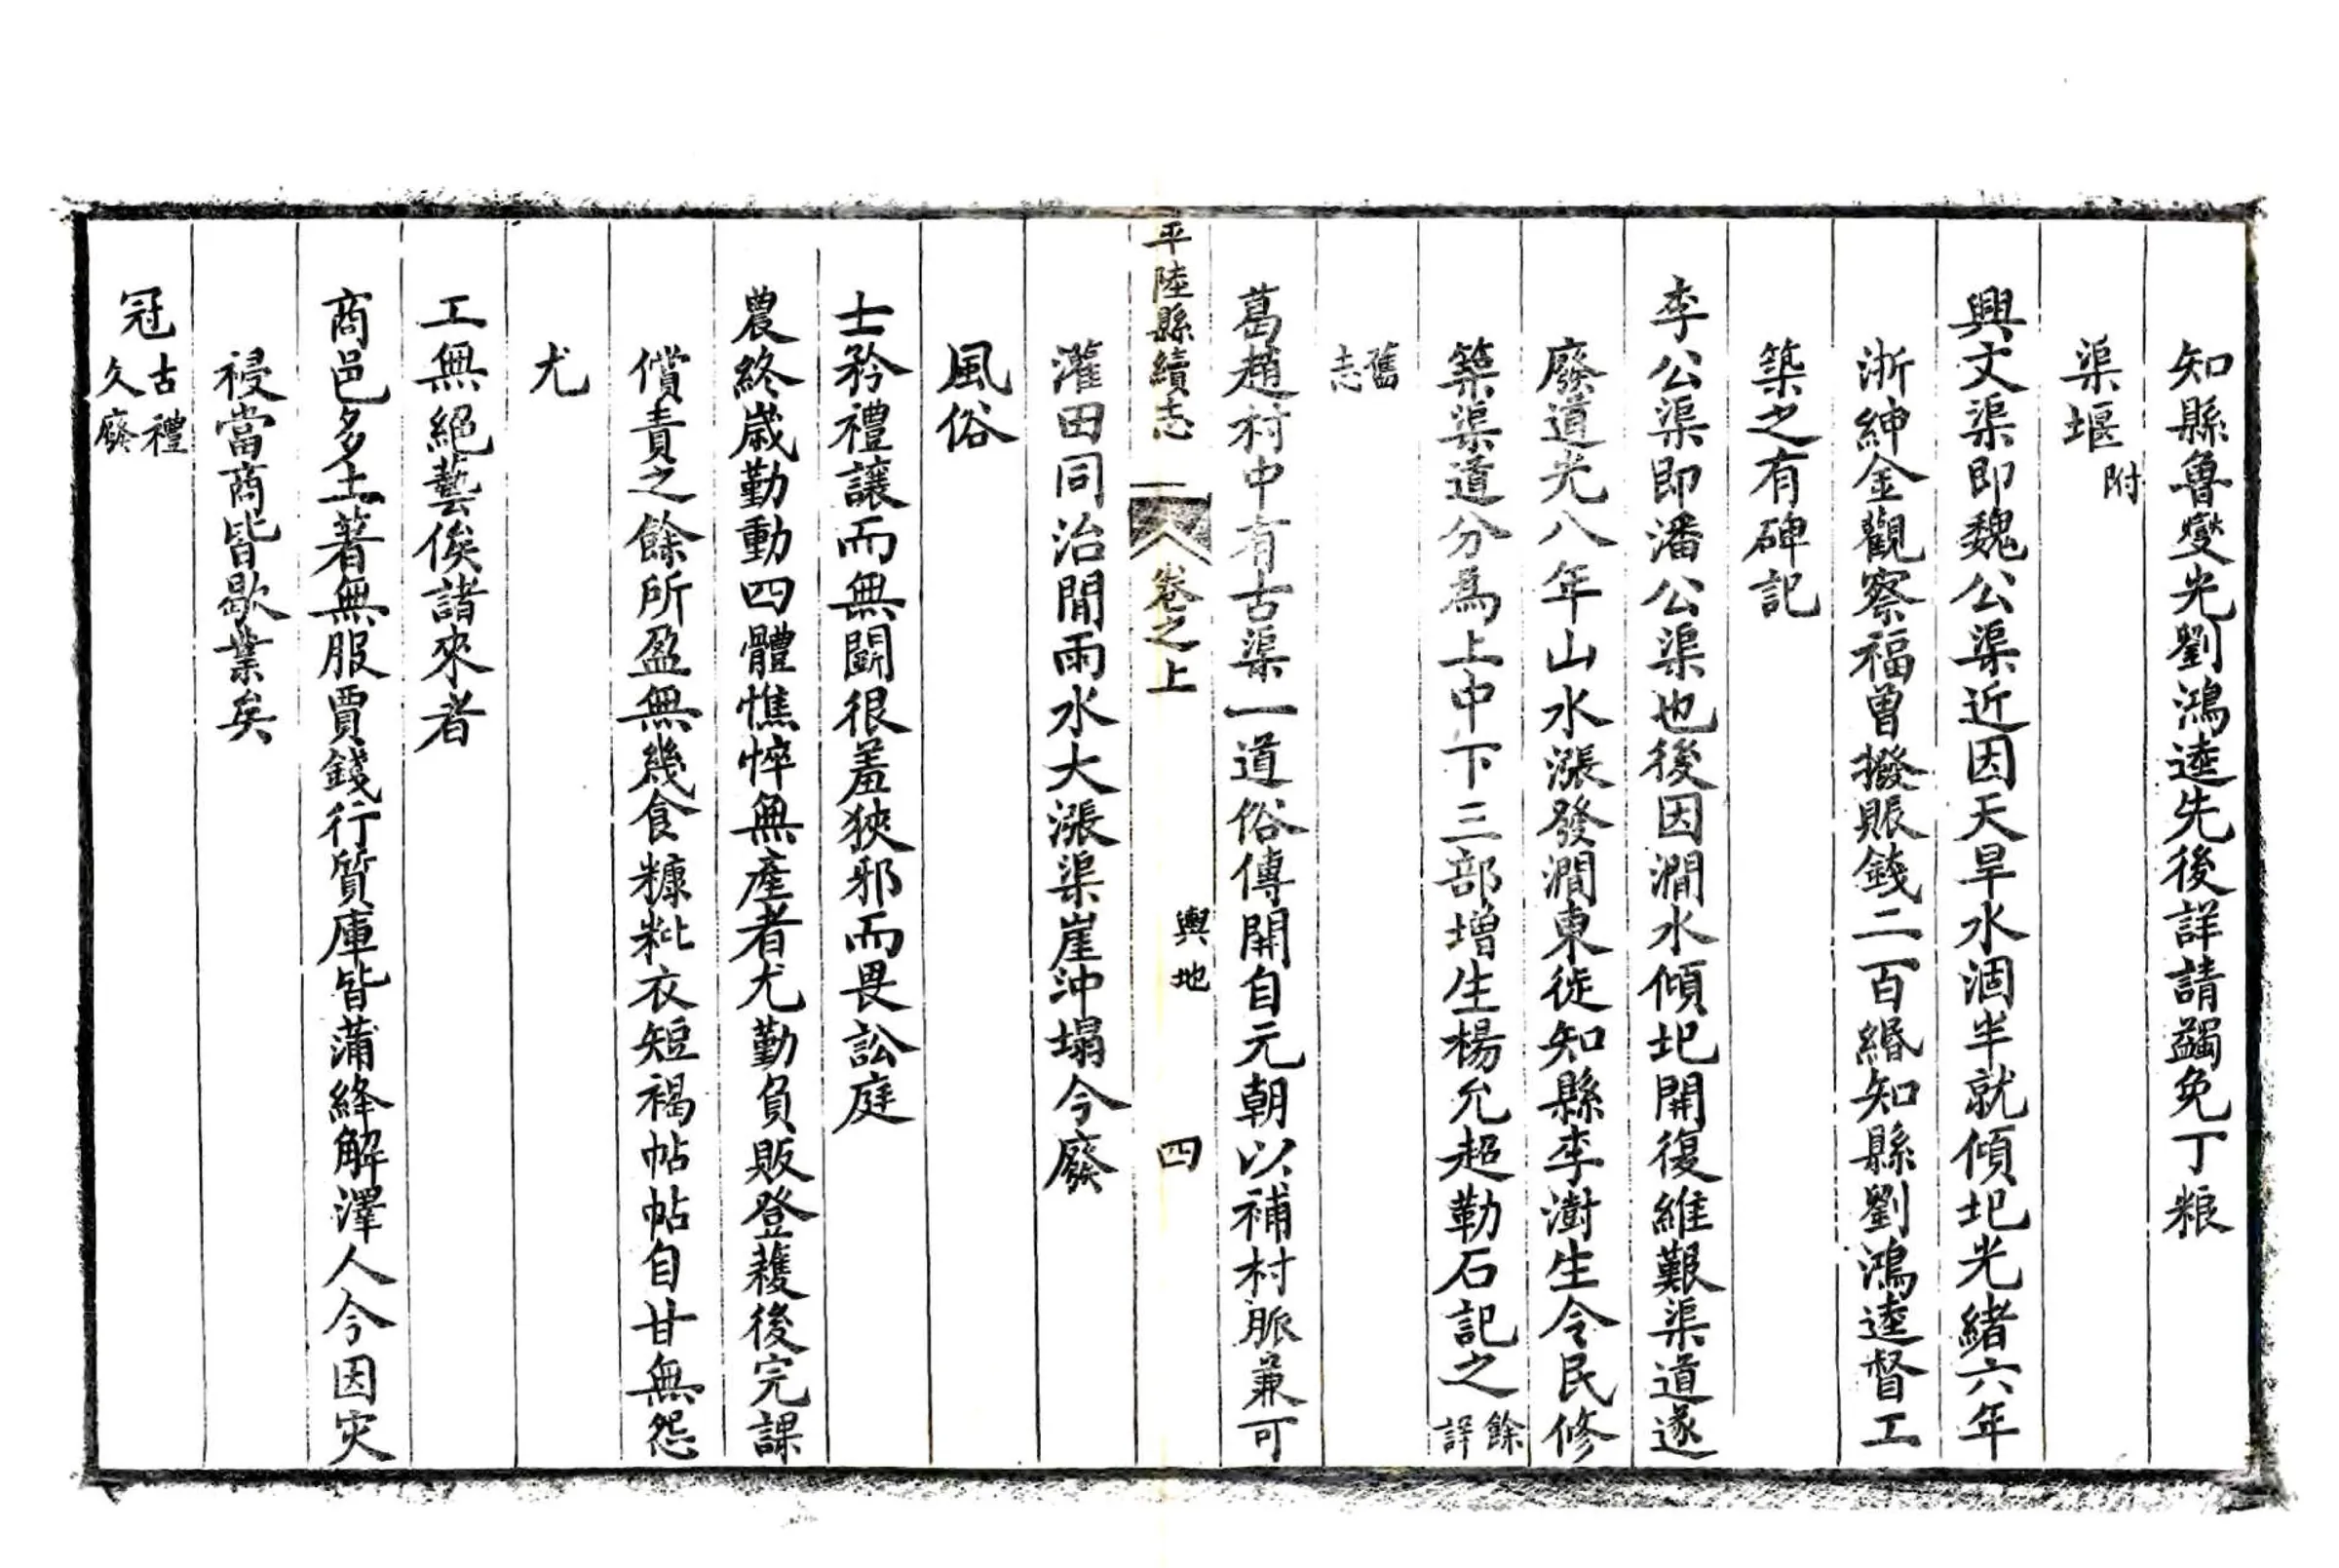 知縣魯燮光劉鴻逵先後詳請蠲免丁粮
渠堰附
興文渠即魏公渠近因天旱水涸半就傾圯光緒六年
浙紳金觀察福曾撥賑錢二百緡知縣劉鴻逵督工
築之有碑記
李公渠即潘公渠也後因澗水傾圯開復維艱渠道遂
廢道光八年山水漲發澗東徙知縣李澍生令民修
築渠道分為上中下三部增生楊允超勒石記之餘詳
舊志
葛趙村中有古渠一道俗傳開自元朝以補村脈兼可
平陸縣續志 卷之上 輿地 四
灌田同治間雨水大漲渠崖沖塌今廢
風俗
士矜禮讓而無鬭很羞狹邪而畏訟庭
農終歲勤動四體憔悴無產者尤勤負販登穫後完課
償責之餘所盈無幾食糠粃衣短褐帖帖自甘無怨
尤
工無絕藝俟諸來者
商邑多土著無服賈錢行質庫皆蒲絳解澤人今因灾
祲當商皆歇業矣
冠古禮久廢